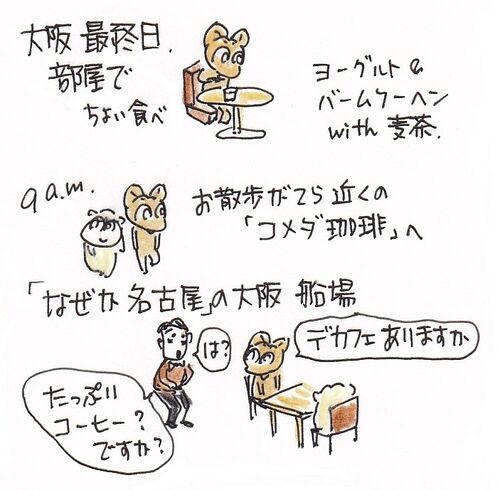 大阪 最終日.
部屋で
ちょい食べ
ヨーグルト&
バームクーヘン
with 麦茶.
9 a.m.
お散歩がてら 近くの
「コメダ珈琲」へ
「なぜか 名古屋」の大阪 船場
デカフェ ありますか
は?
たっぷり
コーヒー?
ですか?